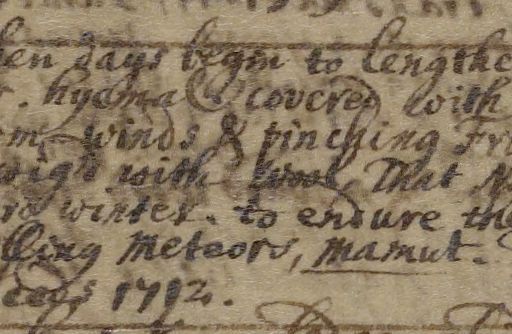 hen days begin to lengthe
r. hyemal covered with
winds & pinching Fro
with wool, That
winter. to endure the
lling Meteors, Mamut.
1712.